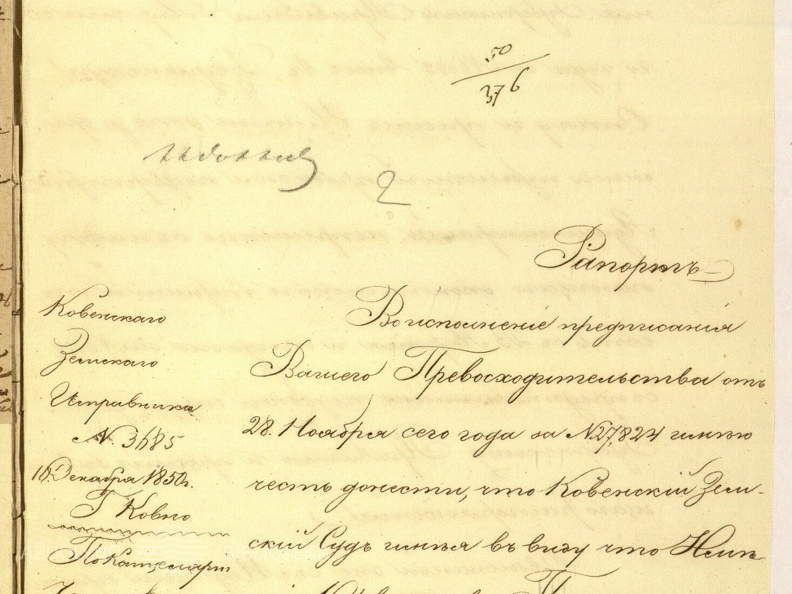 50
376
2
Рапортъ
Ковенскаго
Земскаго
Исправника
№ 3685
16 Декабря 1850 г.
Г Ковно
Во исполненіе предписанія
Вашего Превосходительства отъ
28. Ноября сего года за №27824 имѣю
честь донести, что Ковенскій Зем-
скій Судъ имѣя въ виду что